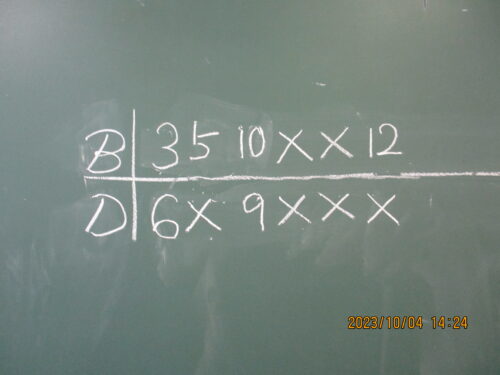 B 3 5 10 X X 12
D 6 X 9 X X X
2023/10/04 14:24